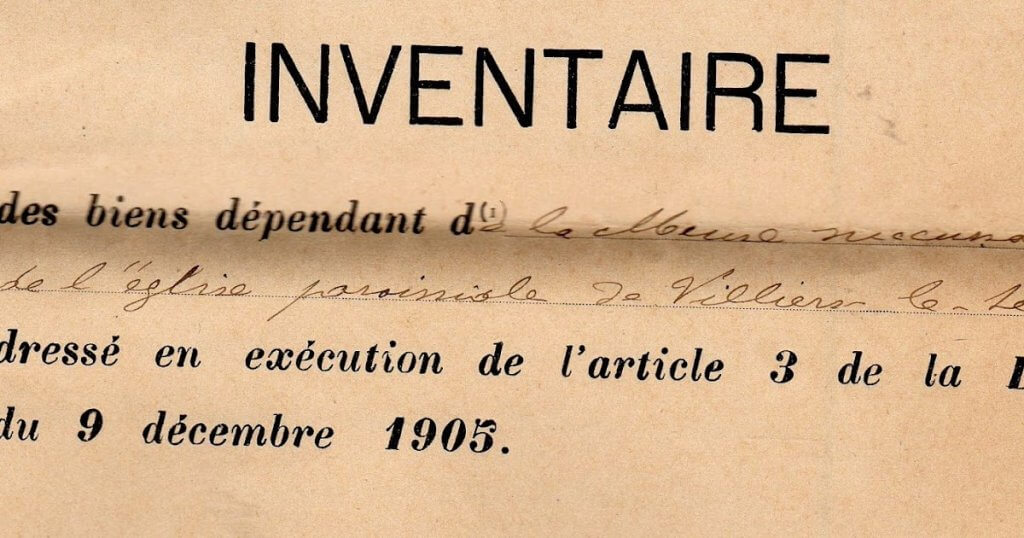 INVENTAIRE
des biens dépendant d(1)e la Mense succurs
de l'église paroissiale de Villiers-le-
dressé en exécution de l'article 3 de la
du 9 décembre 1905.